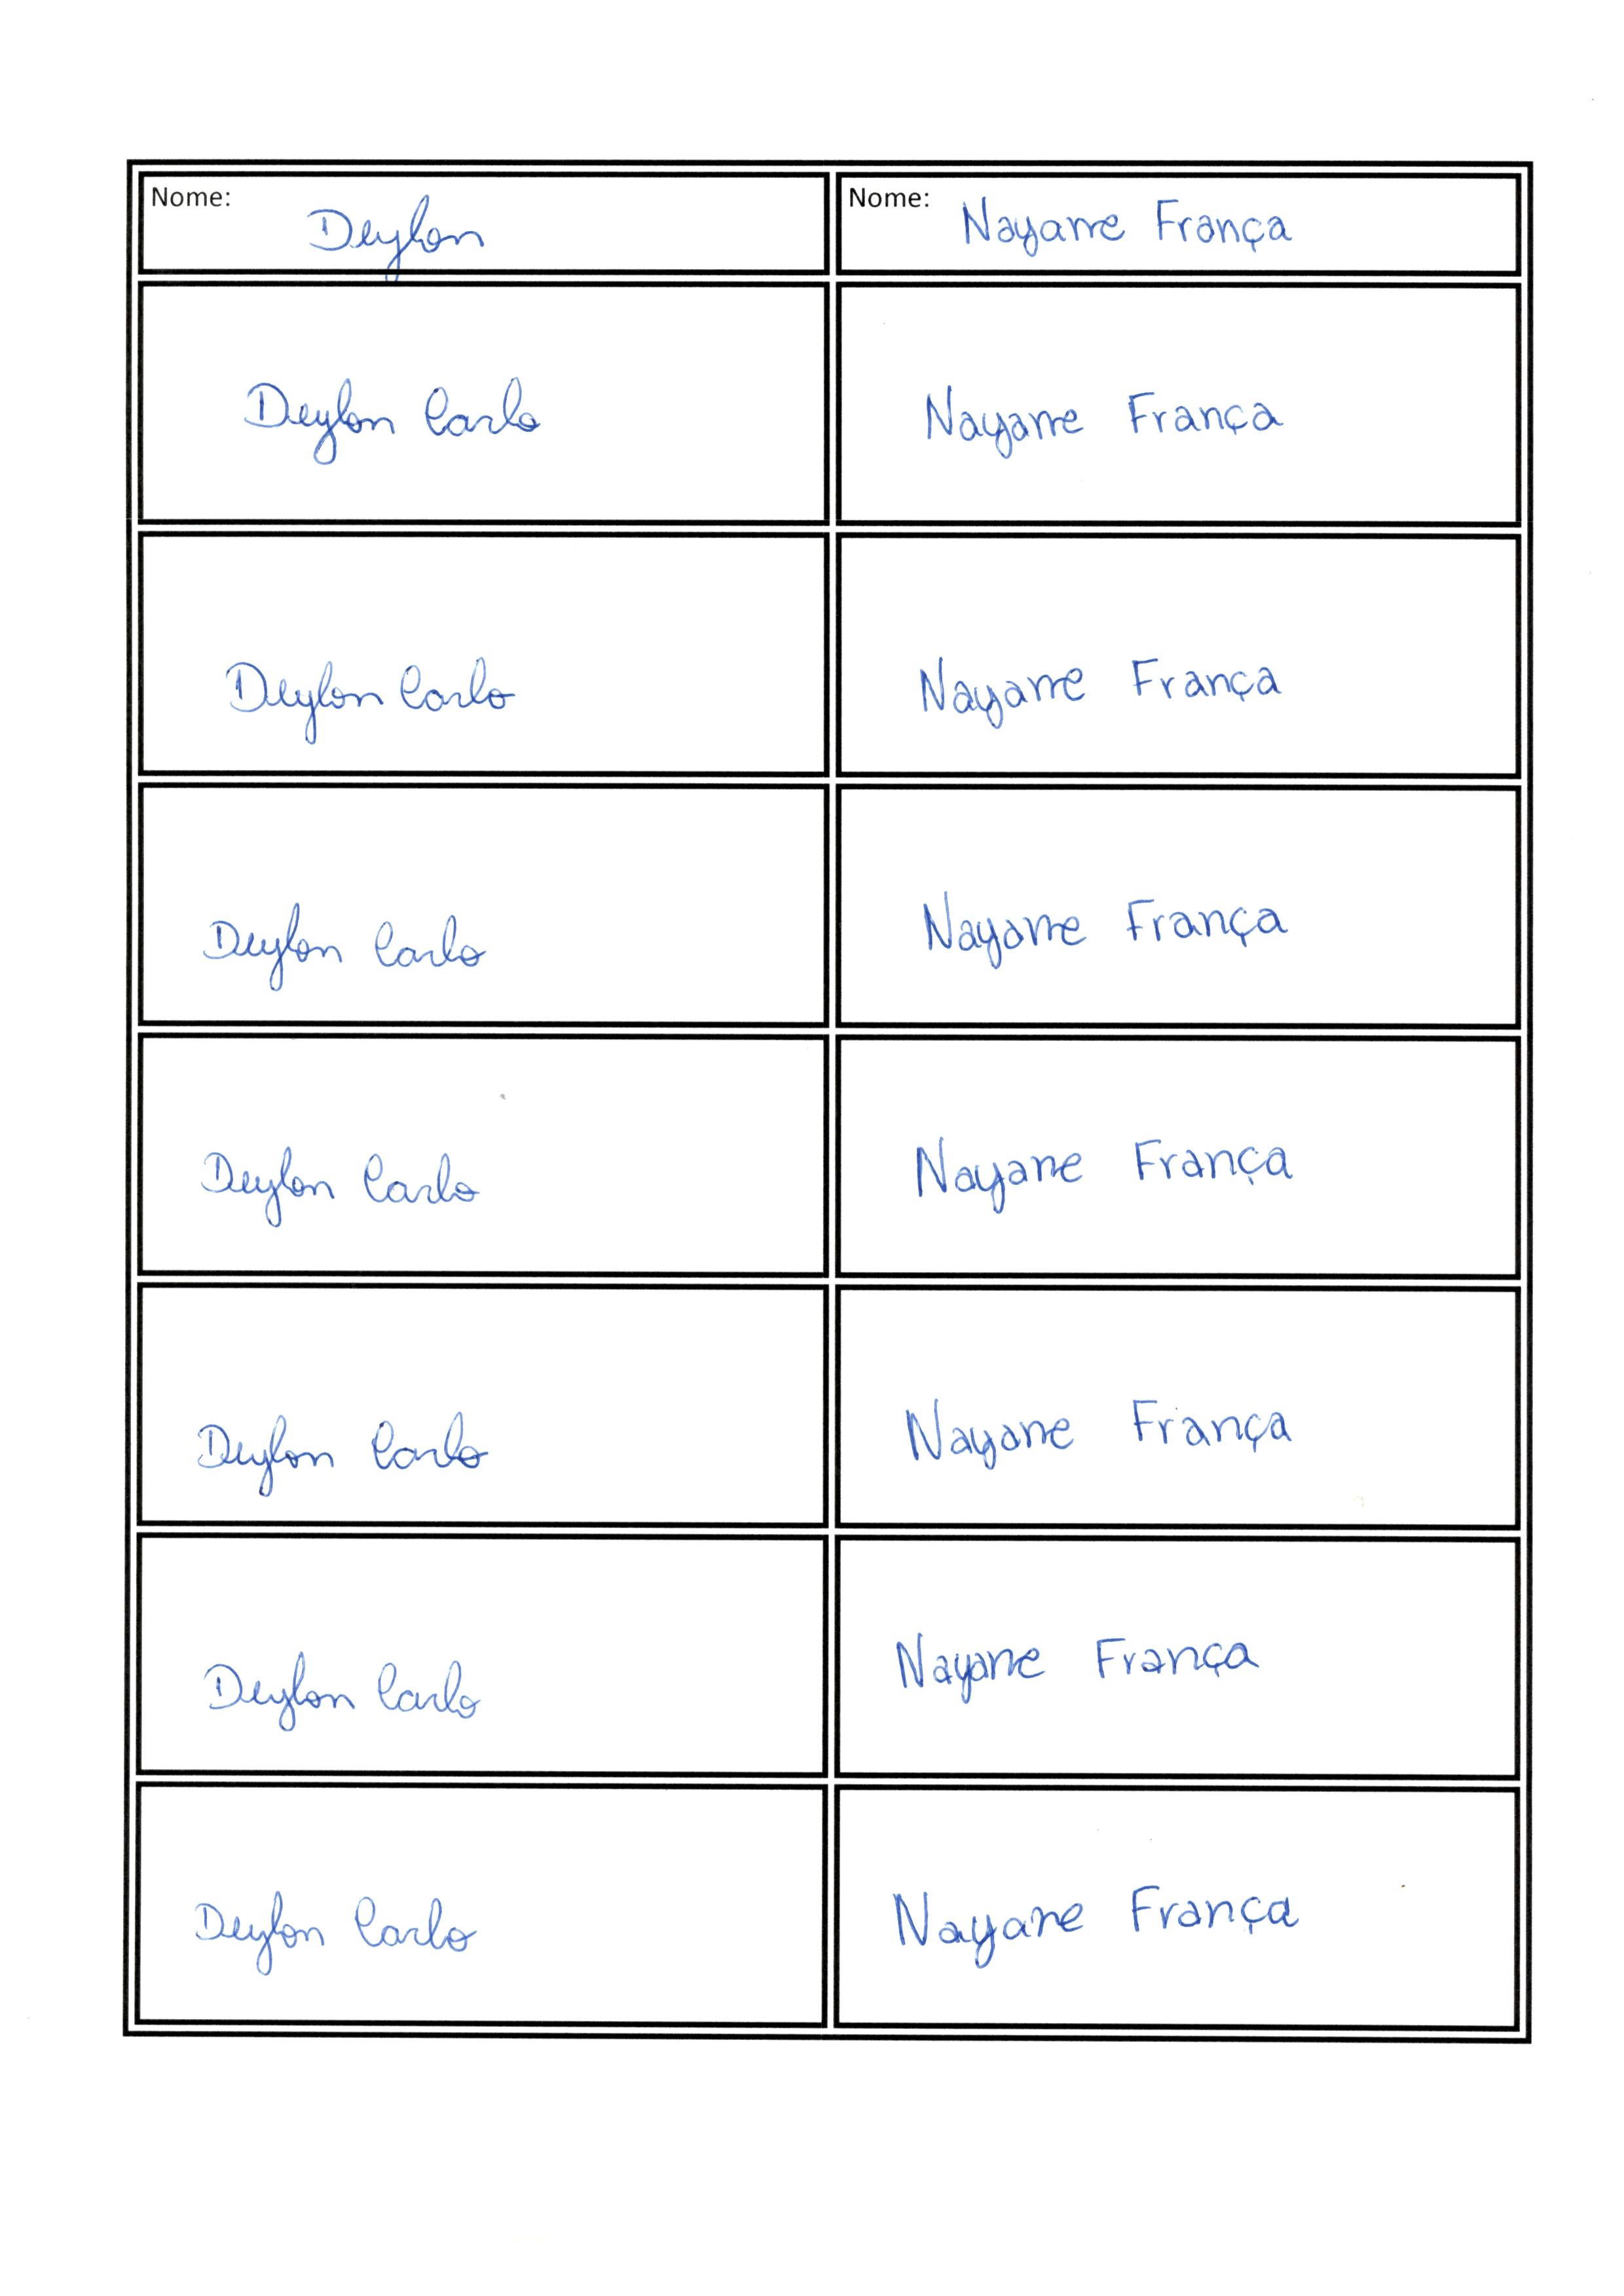 Nome: Deylon Nome: Nayanne França
Deylon Carlo Nayanne França
Deylon Carlo Nayanne França
Deylon Carlo Nayanne França
Deylon Carlo Nayane França
Deylon Carlo Nayane França
Deylon Carlo Nayane França
Deylon Carlo Nayane França